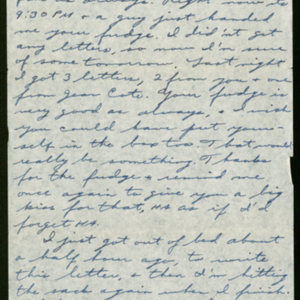 for me always. Right now its
9:30 PM & a guy just handed
me your fudge. I did'nt get
any letters, so now I'm sure
of some tomorrow. Last night
I got 3 letters, 2 from you & one
from Jean Cate. Your fudge is
very good as always, & I wish
you could have put your-
self in the box too. That would
really be something. Thanks
for the fudge & remind me
once again to give you a big
kiss for that, Ha as if I'd
forget Ha.
I just got out of bed about
a half hour ago to write
this letter, & then I'm hitting
the sack again when I finish.